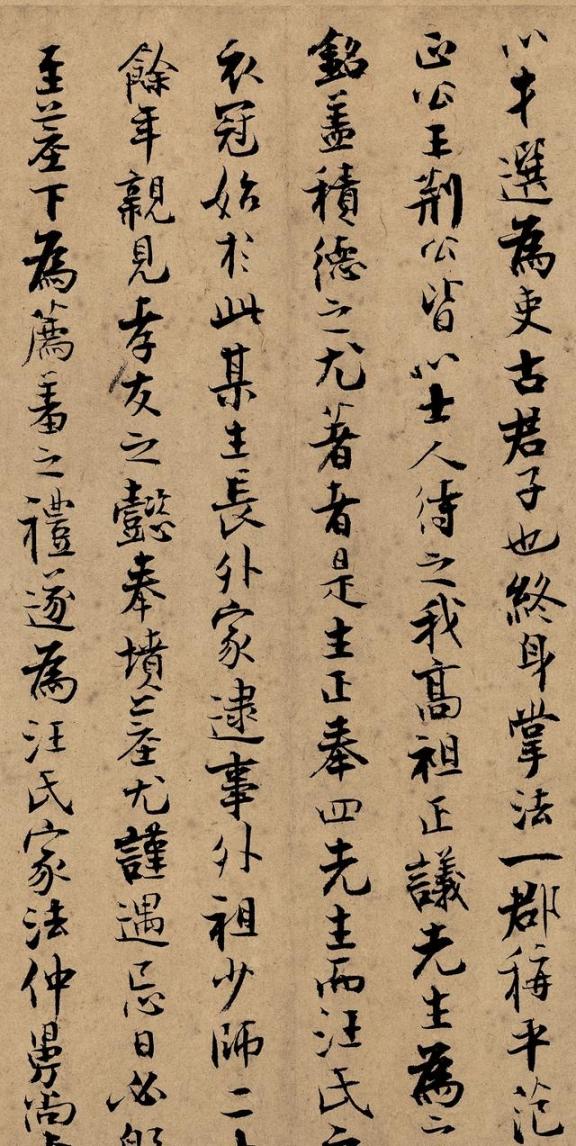 以才選為吏古君子也終身掌法一郡稱平范
正公王荊公皆以士人待之我高祖正議先生為之
銘盖積德之尤著者是生正奉四先生而汪氏之
衣冠始於此某生長外家逮事外祖少師二十
餘年親見孝友之懿奉墳墓尤謹遇忌日必躬
至墓下為薦羞之禮遂為汪氏家法仲舅尚書